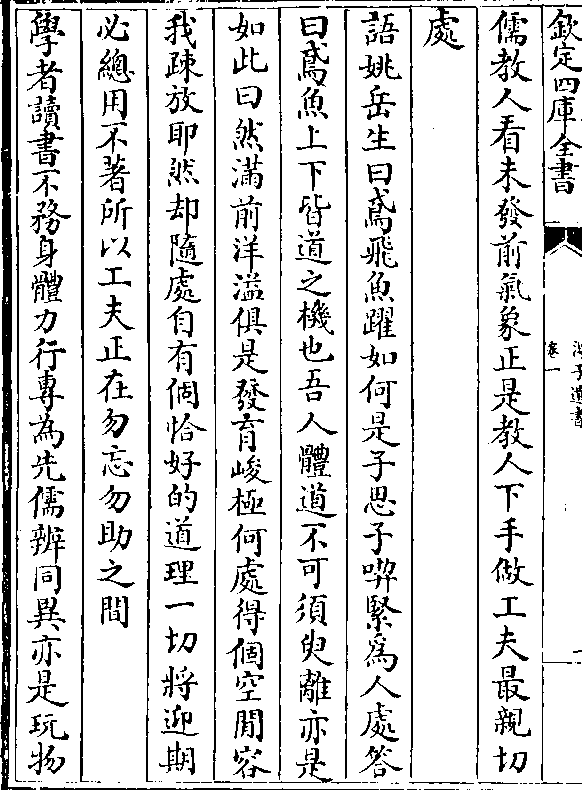 欽定四庫全書
卷一
儒教人看未發前氣象正是教人下手做工夫最親切
處
語姚岳生曰鳶飛魚躍如何是子思子喫緊為人處答
曰鳶魚上下皆道之機也吾人體道不可須臾離亦是
如此曰然滿前洋溢俱是發育峻極何處得個空閒容
我疎放耶然却隨處自有個恰好的道理一切將迎期
必總用不著所以工夫正在勿忘勿助之間
學者讀書不務身體力行專為先儒辨同異亦是玩物